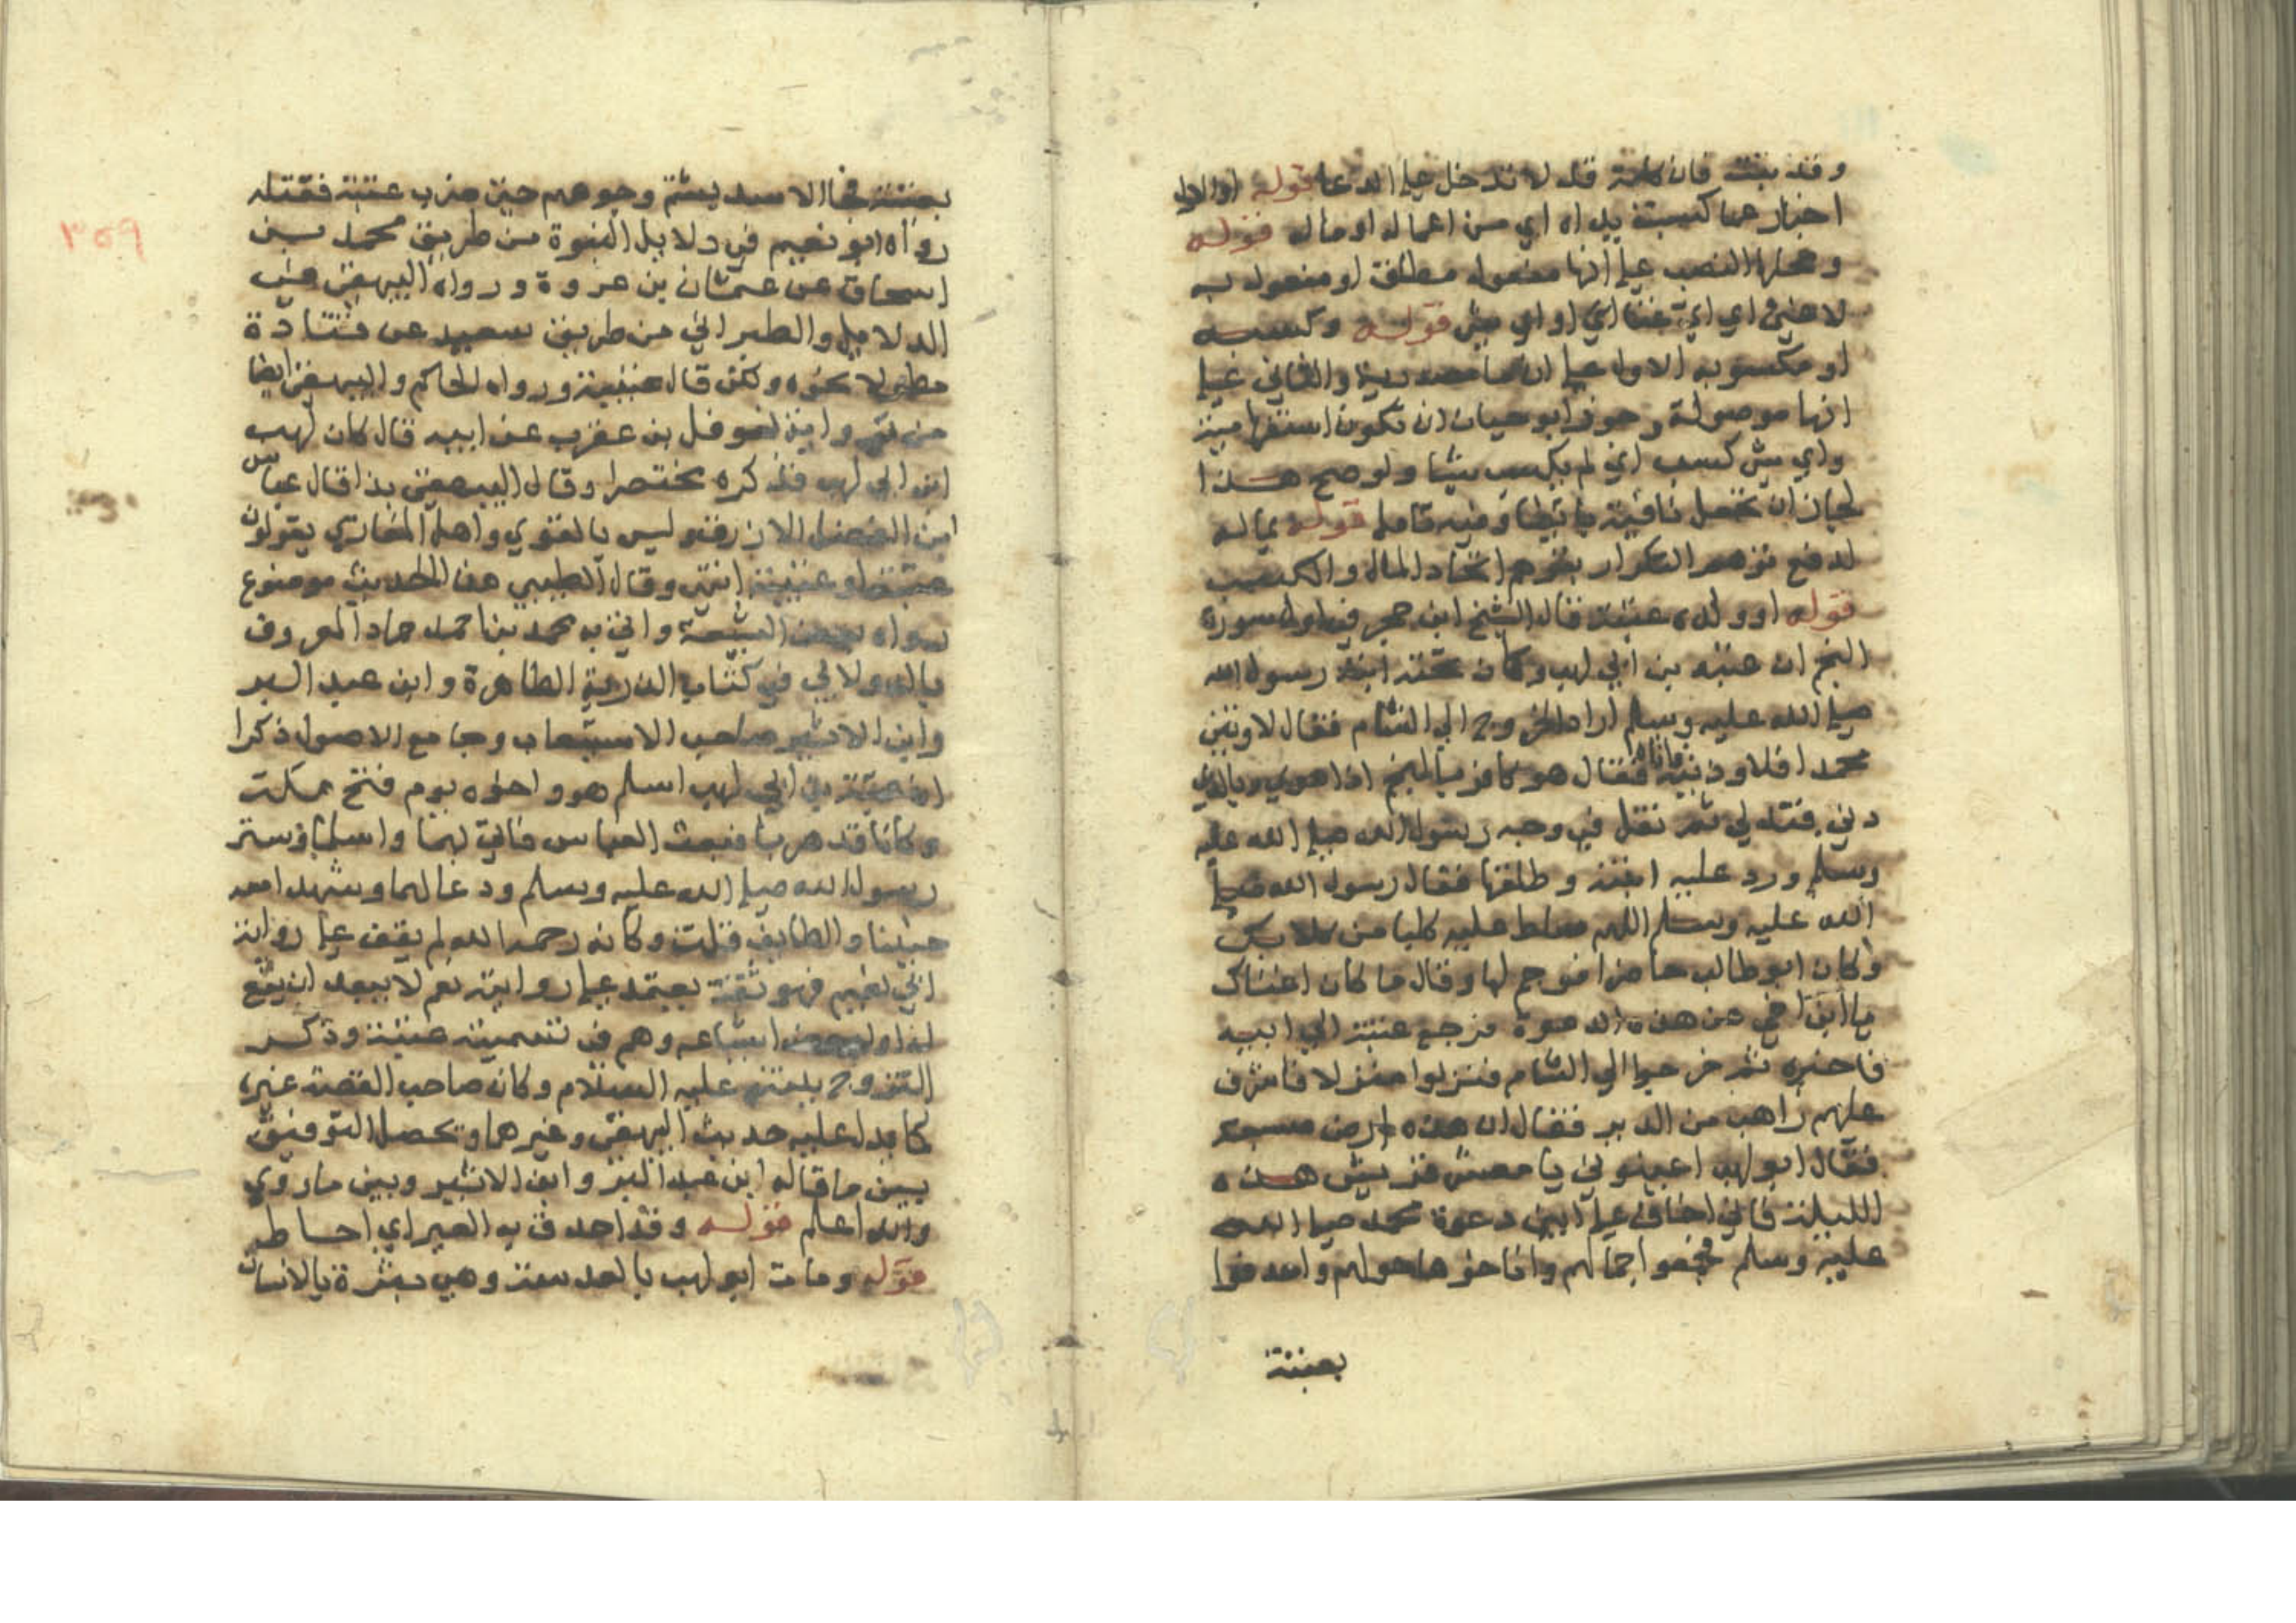 وقد بينته فان كلمة قد لا تدخل على الدعا قوله او الاول
اخبار عما كسبته يداه اي من اعماله او ماله قوله
ومحلها النصب على انها مفعول مطلق او مفعول به
لاغنى اي اي غنا اي او اي شى قوله وكسبه
او مكسوبه الاول على ان ما مصدرية والثاني على
انها موصولة وجوز ابو حيان ان تكون استفهامية
واي شى كسب اي لم يكسب شيا ولو صح هذا
لجاز ان تجعل نافية وفيه تامل قوله بماله
لدفع توهم التكرار بتوهم اتحاد المال والكسب
قوله او ولده عتبة قال الشيخ ابن حجر في اول سورة
النجم ان عتبه بن ابي لهب وكان تحته ابنة رسول الله
صلى الله عليه وسلم اراد الخروج الى الشام فقال لاوتين
محمدا فلاوذينه فاتاه فقال هو كافر بالنجم اذا هوى وبالذي
دنى فتدلى ثم تفل في وجه رسول الله صلى الله عليه
وسلم ورد عليه ابنته وطلقها فقال رسول الله صلى
الله عليه وسلم اللهم سلط عليه كلبا من كلابك
وكان ابو طالب حاضرا فوجم لها وقال ما كان اغناك
يا ابن اخي عن هذه الدعوة فرجع عتبة الى ابيه
فاخبره ثم خرجوا الى الشام فنزلوا منزلا فاشرف
عليهم راهب من الدير فقال ان هذه ارض مسبعة
فقال ابو لهب اعينوني يا معشر قريش هذه
الليلة فاني اخاف على ابني دعوة محمد صلى الله
عليه وسلم فجمعوا جمالهم واناخوها حولهم واحدقوا
بعتبة
٣٥٩
بعتبة فجا الاسد يشم وجوههم حتى ضرب عتبة فقتله
رواه ابو نعيم في دلايل النبوة من طريق محمد بن
اسحاق عن عثمان بن عروة ورواه البيهقى في
الدلايل والطبراني من طريق سعيد عن قتادة
مطولا نحوه ولكن قال عتيبة ورواه الحاكم والبيهقى ايضا
من رواية نوفل بن عقرب عن ابيه قال كان لهب
ابن ابي لهب فذكره مختصرا وقال البيهقى كذا قال عباس
ابن الفضل الازرق وليس بالقوي واهل المغازي يقولون
عتبة او عتيبة انتهى وقال الطيبي هذا الحديث موضوع
رواه بعض الشيعة واتى به محمد بن احمد حماد المعروف
بالدولابي في كتاب الذرية الطاهرة وابن عبد البر
وابن الاثير صاحب الاستيعاب وجامع الاصول ذكرا
ان عتبة بن ابي لهب اسلم هو واخوه يوم فتح مكة
وكانا قد هربا فبعث العباس فاتى بهما واسلما فستر
رسول الله صلى الله عليه وسلم ودعا لهما وشهدا معه
حنينا والطايف قلت وكانه رحمه الله لم يقف على رواية
ابي نعيم فهو ثقة يعتمد على روايته نعم لا يبعد ان يقع
له او لبعض اتباعه وهم في تسمية عتبة وذكر
التزوج ببنته عليه السلام وكان صاحب القصة غيره
كما يدل عليه حديث البيهقى وغيرهما ويحصل التوفيق
بين ما قاله ابن عبد البر وابن الاثير وبين ما روى
والله اعلم قوله وقد احدق به العير اي احاط
قوله ومات ابو لهب بالعدسة وهي بثرة بالانسان